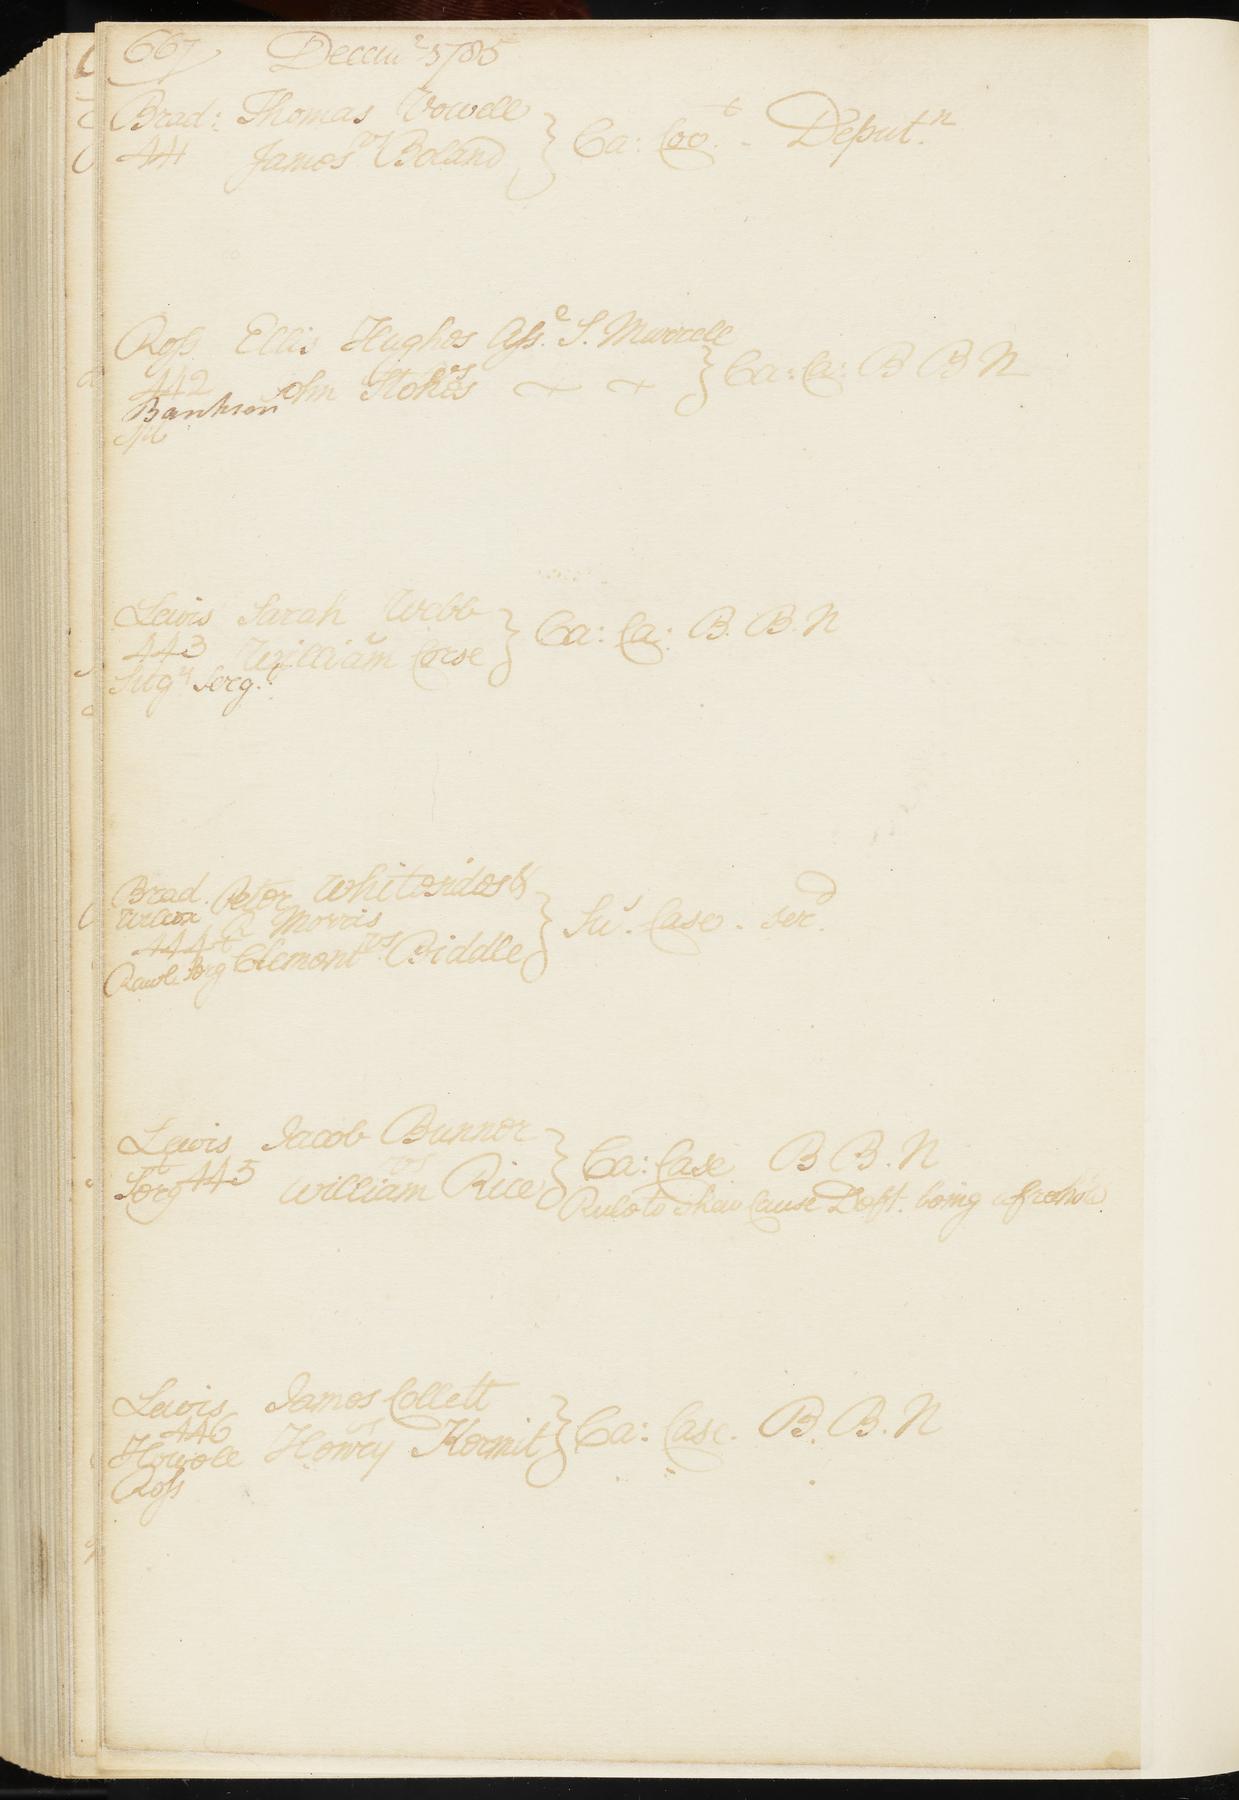 667 Decem^r 1785
Brad: Thomas Vowell
441 vs } Ca: Cov.^t - Deput.^n
James Boland
Ross Ellis Hughes Ass.^e S. Murrell
442 vs } Ca: Ca: B B N
John Stokes
Bankson
Lewis Sarah Webb
443 v } Ca: Ca: B. B. N
William Corse
Serg.^t
Brad. Peter Whitesides &
Wilcox R Morris
444 vs } Su^s. Case. Ser^d.
Rawle Serg Clement Biddle
Lewis Jacob Bunner
Serg^t 445 vs } Ca: Case B B. N
William Rice
Rule to shew Cause Deft. being a freehold
Lewis James Collett
446 vs } Ca: Case. B. B. N
Howell Henry Kermit
Ross